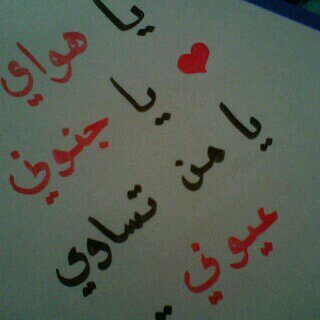 يا هواي
يا جنوني
يا من تساوي
عيوني